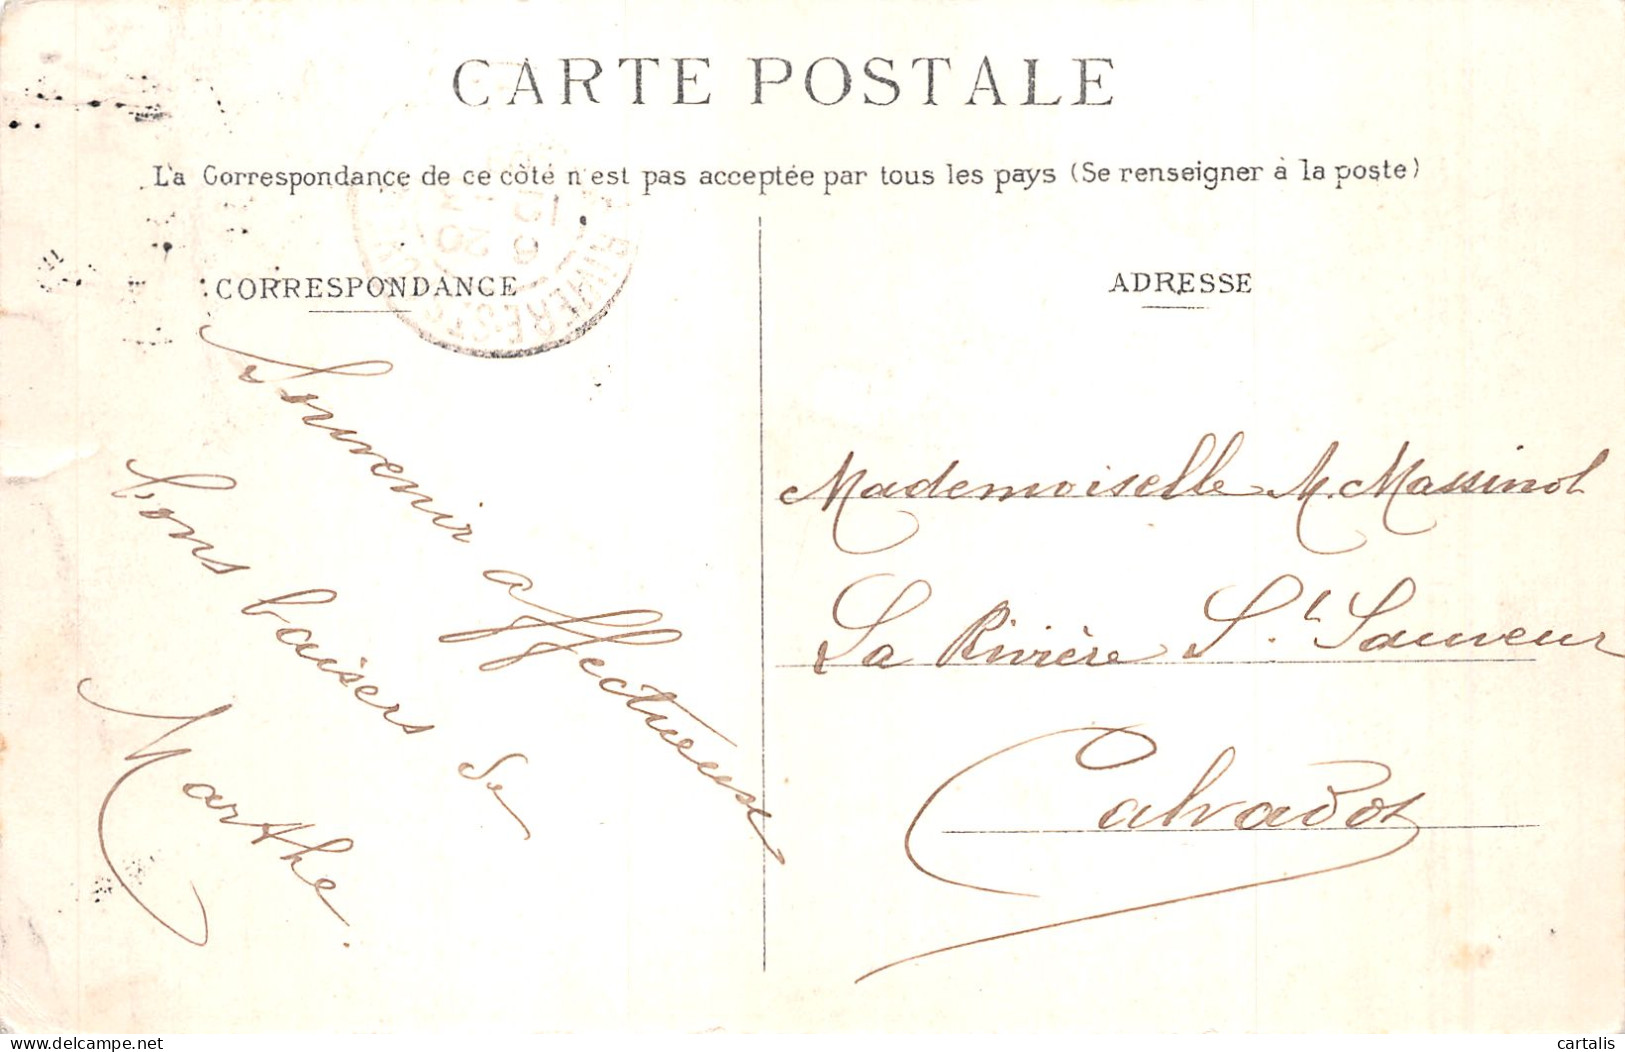 CARTE POSTALE
La Correspondance de ce côté n'est pas acceptée par tous les pays (Se renseigner à la poste)
CORRESPONDANCE
Souvenir affectueux
Bons baisers de
Marthe.
ADRESSE
Mademoiselle M. Massinot
La Rivière St. Sauveur
Calvados
delcampe.net
cartalis